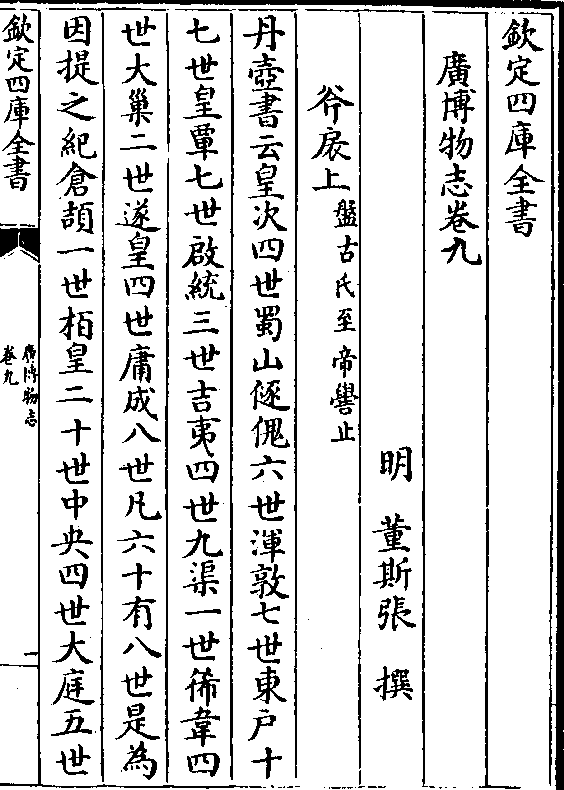 欽定四庫全書
廣博物志卷九
明 董斯張 撰
斧扆上盤古氏至帝嚳止
丹壺書云皇次四世蜀山𠋣傀六世渾敦七世東戶十
七世皇覃七世啟統三世吉夷四世九渠一世狶韋四
世大巢二世遂皇四世庸成八世凡六十有八世是為
因提之紀倉頡一世栢皇二十世中央四世大庭五世
欽定四庫全書
廣博物志
卷九
一